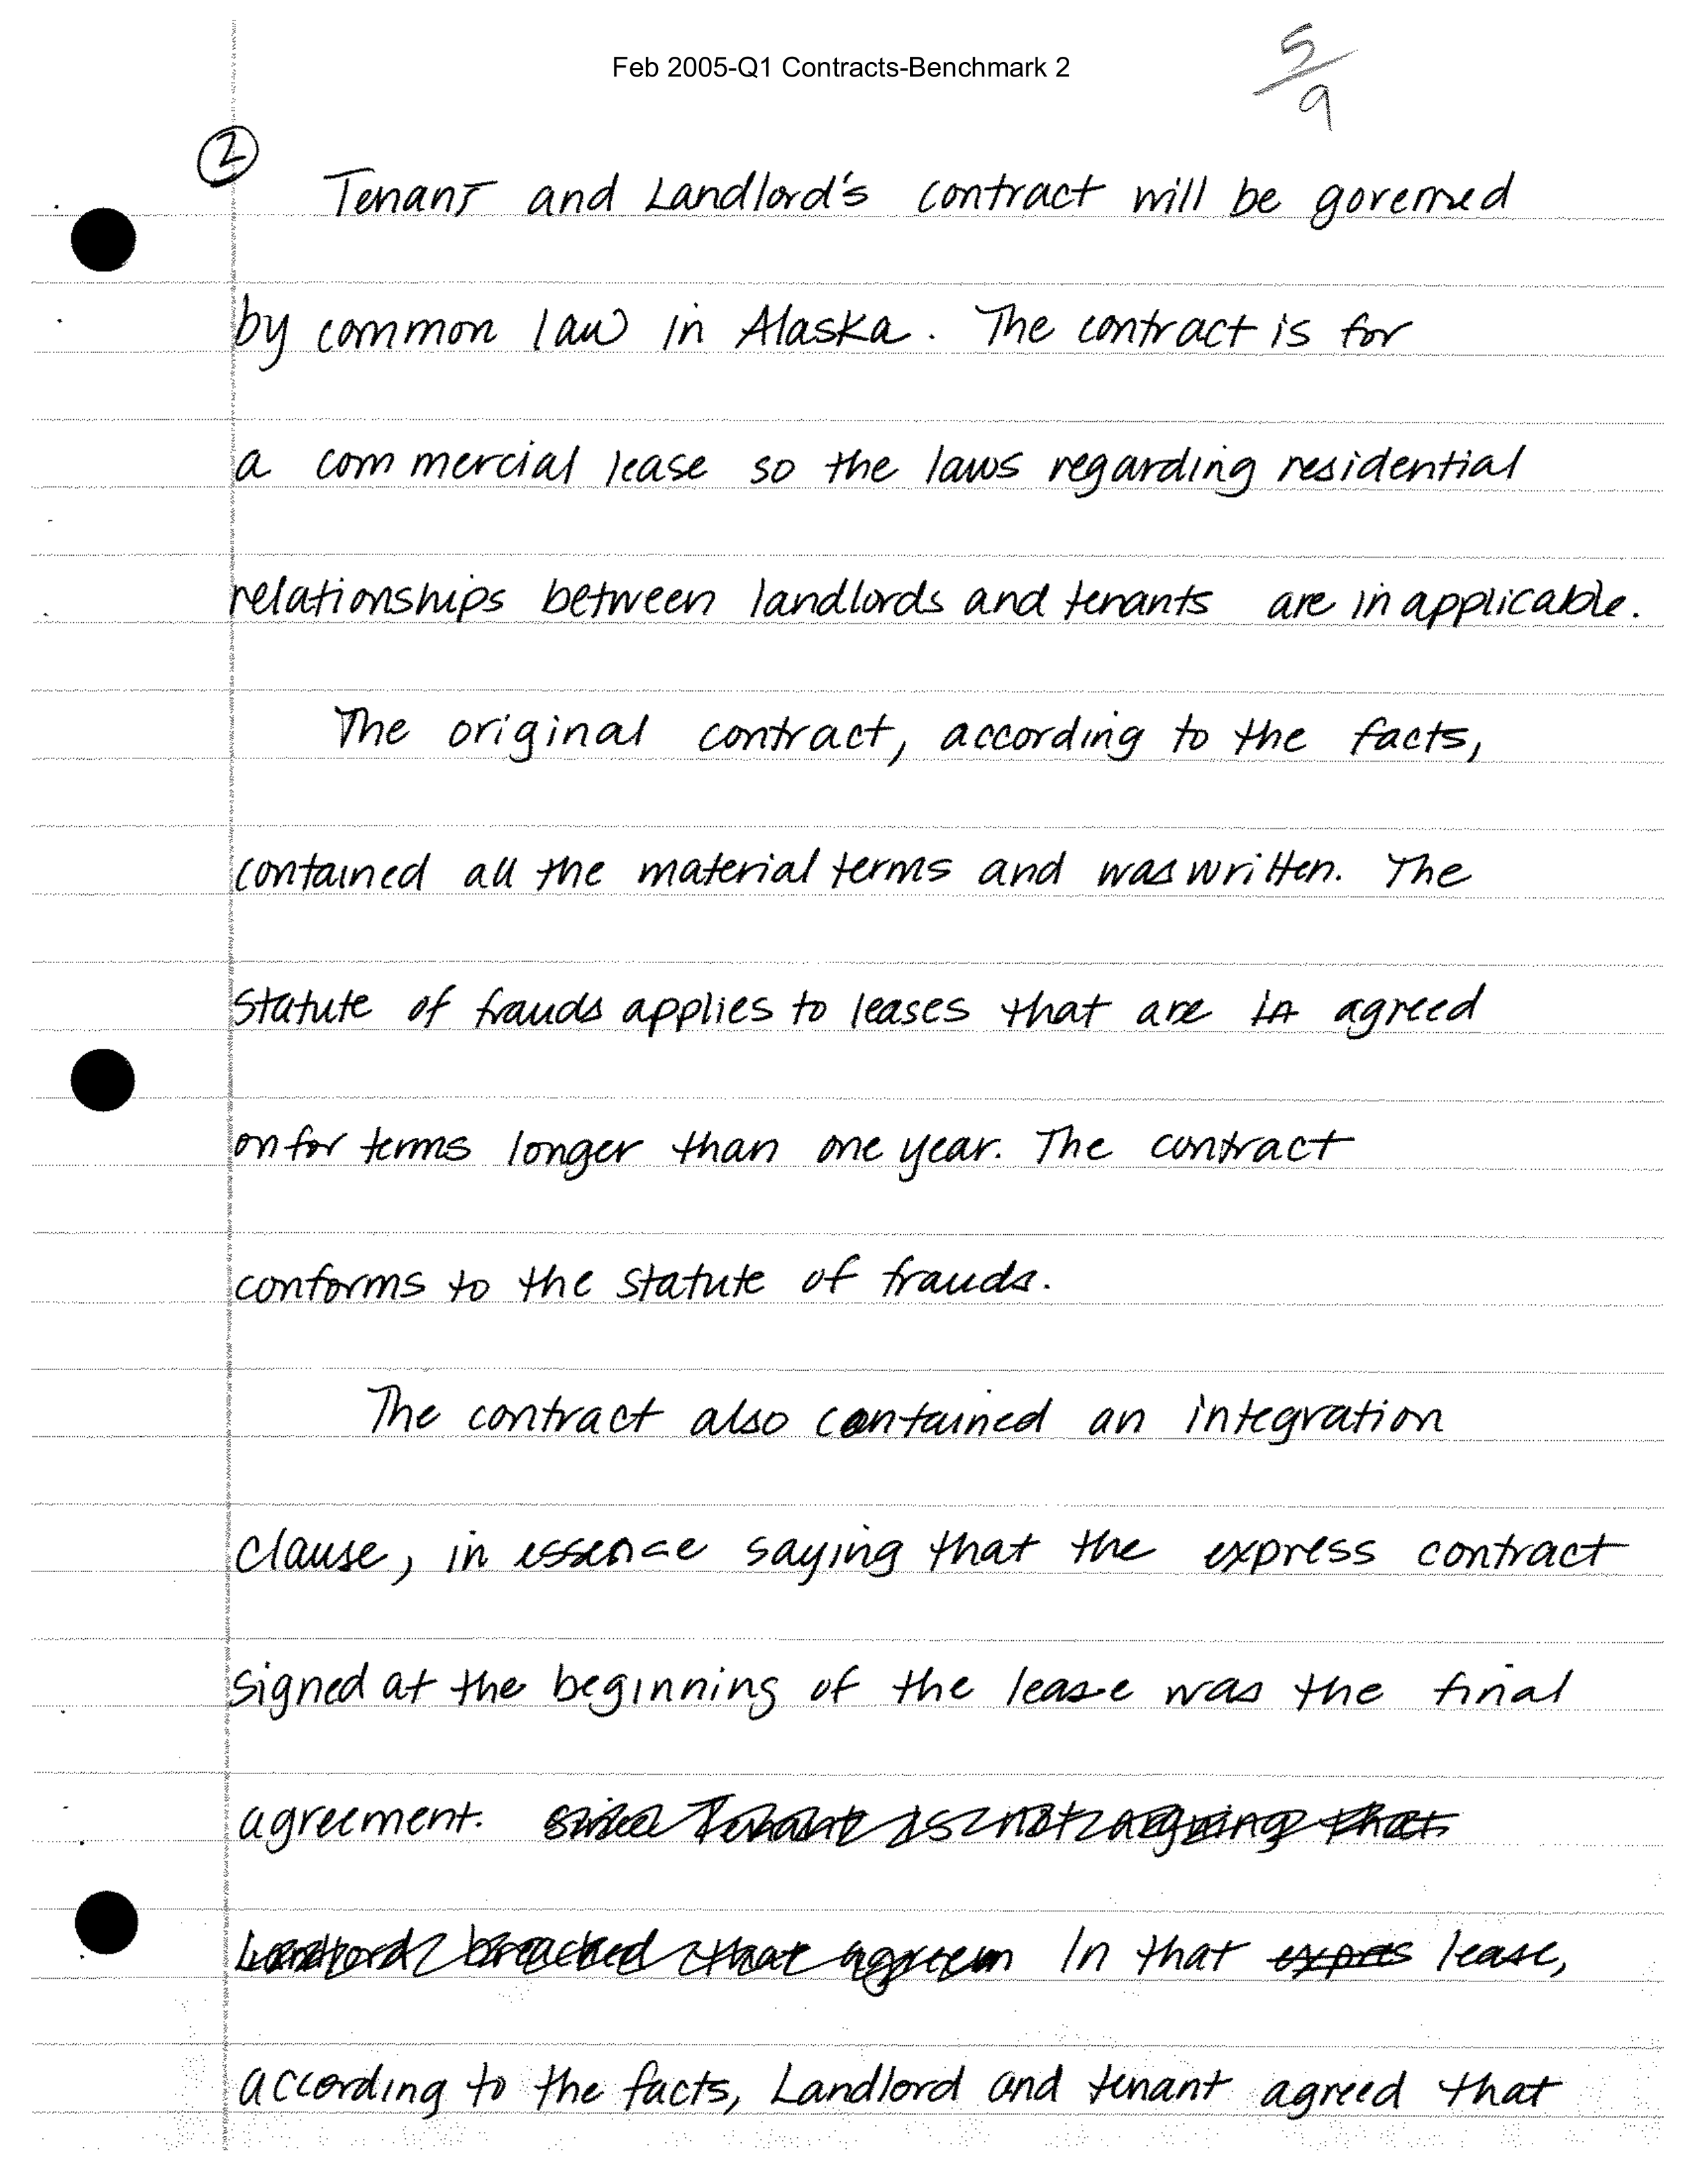 Feb 2005-Q1 Contracts-Benchmark 2
5/9
2
Tenant and Landlord's contract will be governed
by common law in Alaska. The contract is for
a commercial lease so the laws regarding residential
relationships between landlords and tenants are inapplicable.
The original contract, according to the facts,
contained all the material terms and was written. The
statute of frauds applies to leases that are in agreed
on for terms longer than one year. The contract
conforms to the statute of frauds.
The contract also contained an integration
clause, in essence saying that the express contract
signed at the beginning of the lease was the final
agreement. since Tenant is not arguing that
Landlord breached that agreem In that expres lease,
according to the facts, Landlord and tenant agreed that